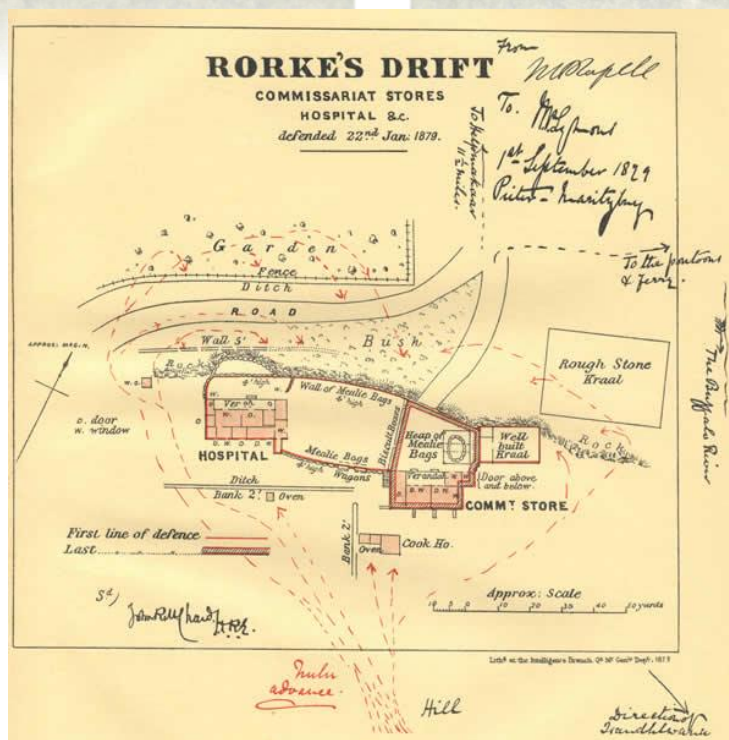 RORKE'S DRIFT
COMMISSARIAT STORES
HOSPITAL &c.
defended 22nd Jan: 1879.
From
To.
1st September 1879
Pieter-Maritzburg
To Helpmakaar
11½ miles.
To the pontoons
& Ferry.
The Buffalo River
Garden
Fence
Ditch
ROAD
Wall 5'
Bush
Rocks
Rough Stone
Kraal
APPROX: MAG. N.
W.C.
o. door
w. window
4' high
Wall of Mealie Bags
4' high
Verah
HOSPITAL
Biscuit Boxes
Heap of
Mealie
Bags
Well
built
Kraal
Rocks
Mealie Bags
4' high Wagons
Verandah
Door above
and below.
COMMT. STORE
Ditch
Bank 2' Oven
Bank 2'
Oven
Cook Ho.
First line of defence
Last
Approx: Scale
10 5 0 10 20 30 40 50 yards
Sd/
John R M Chard
Lt R.E.
Lithd. at the Intelligence Branch. Qr. Mr. Genl's Dept. 1879
Zulu
advance.
Hill
Direction of
Isandhlwana